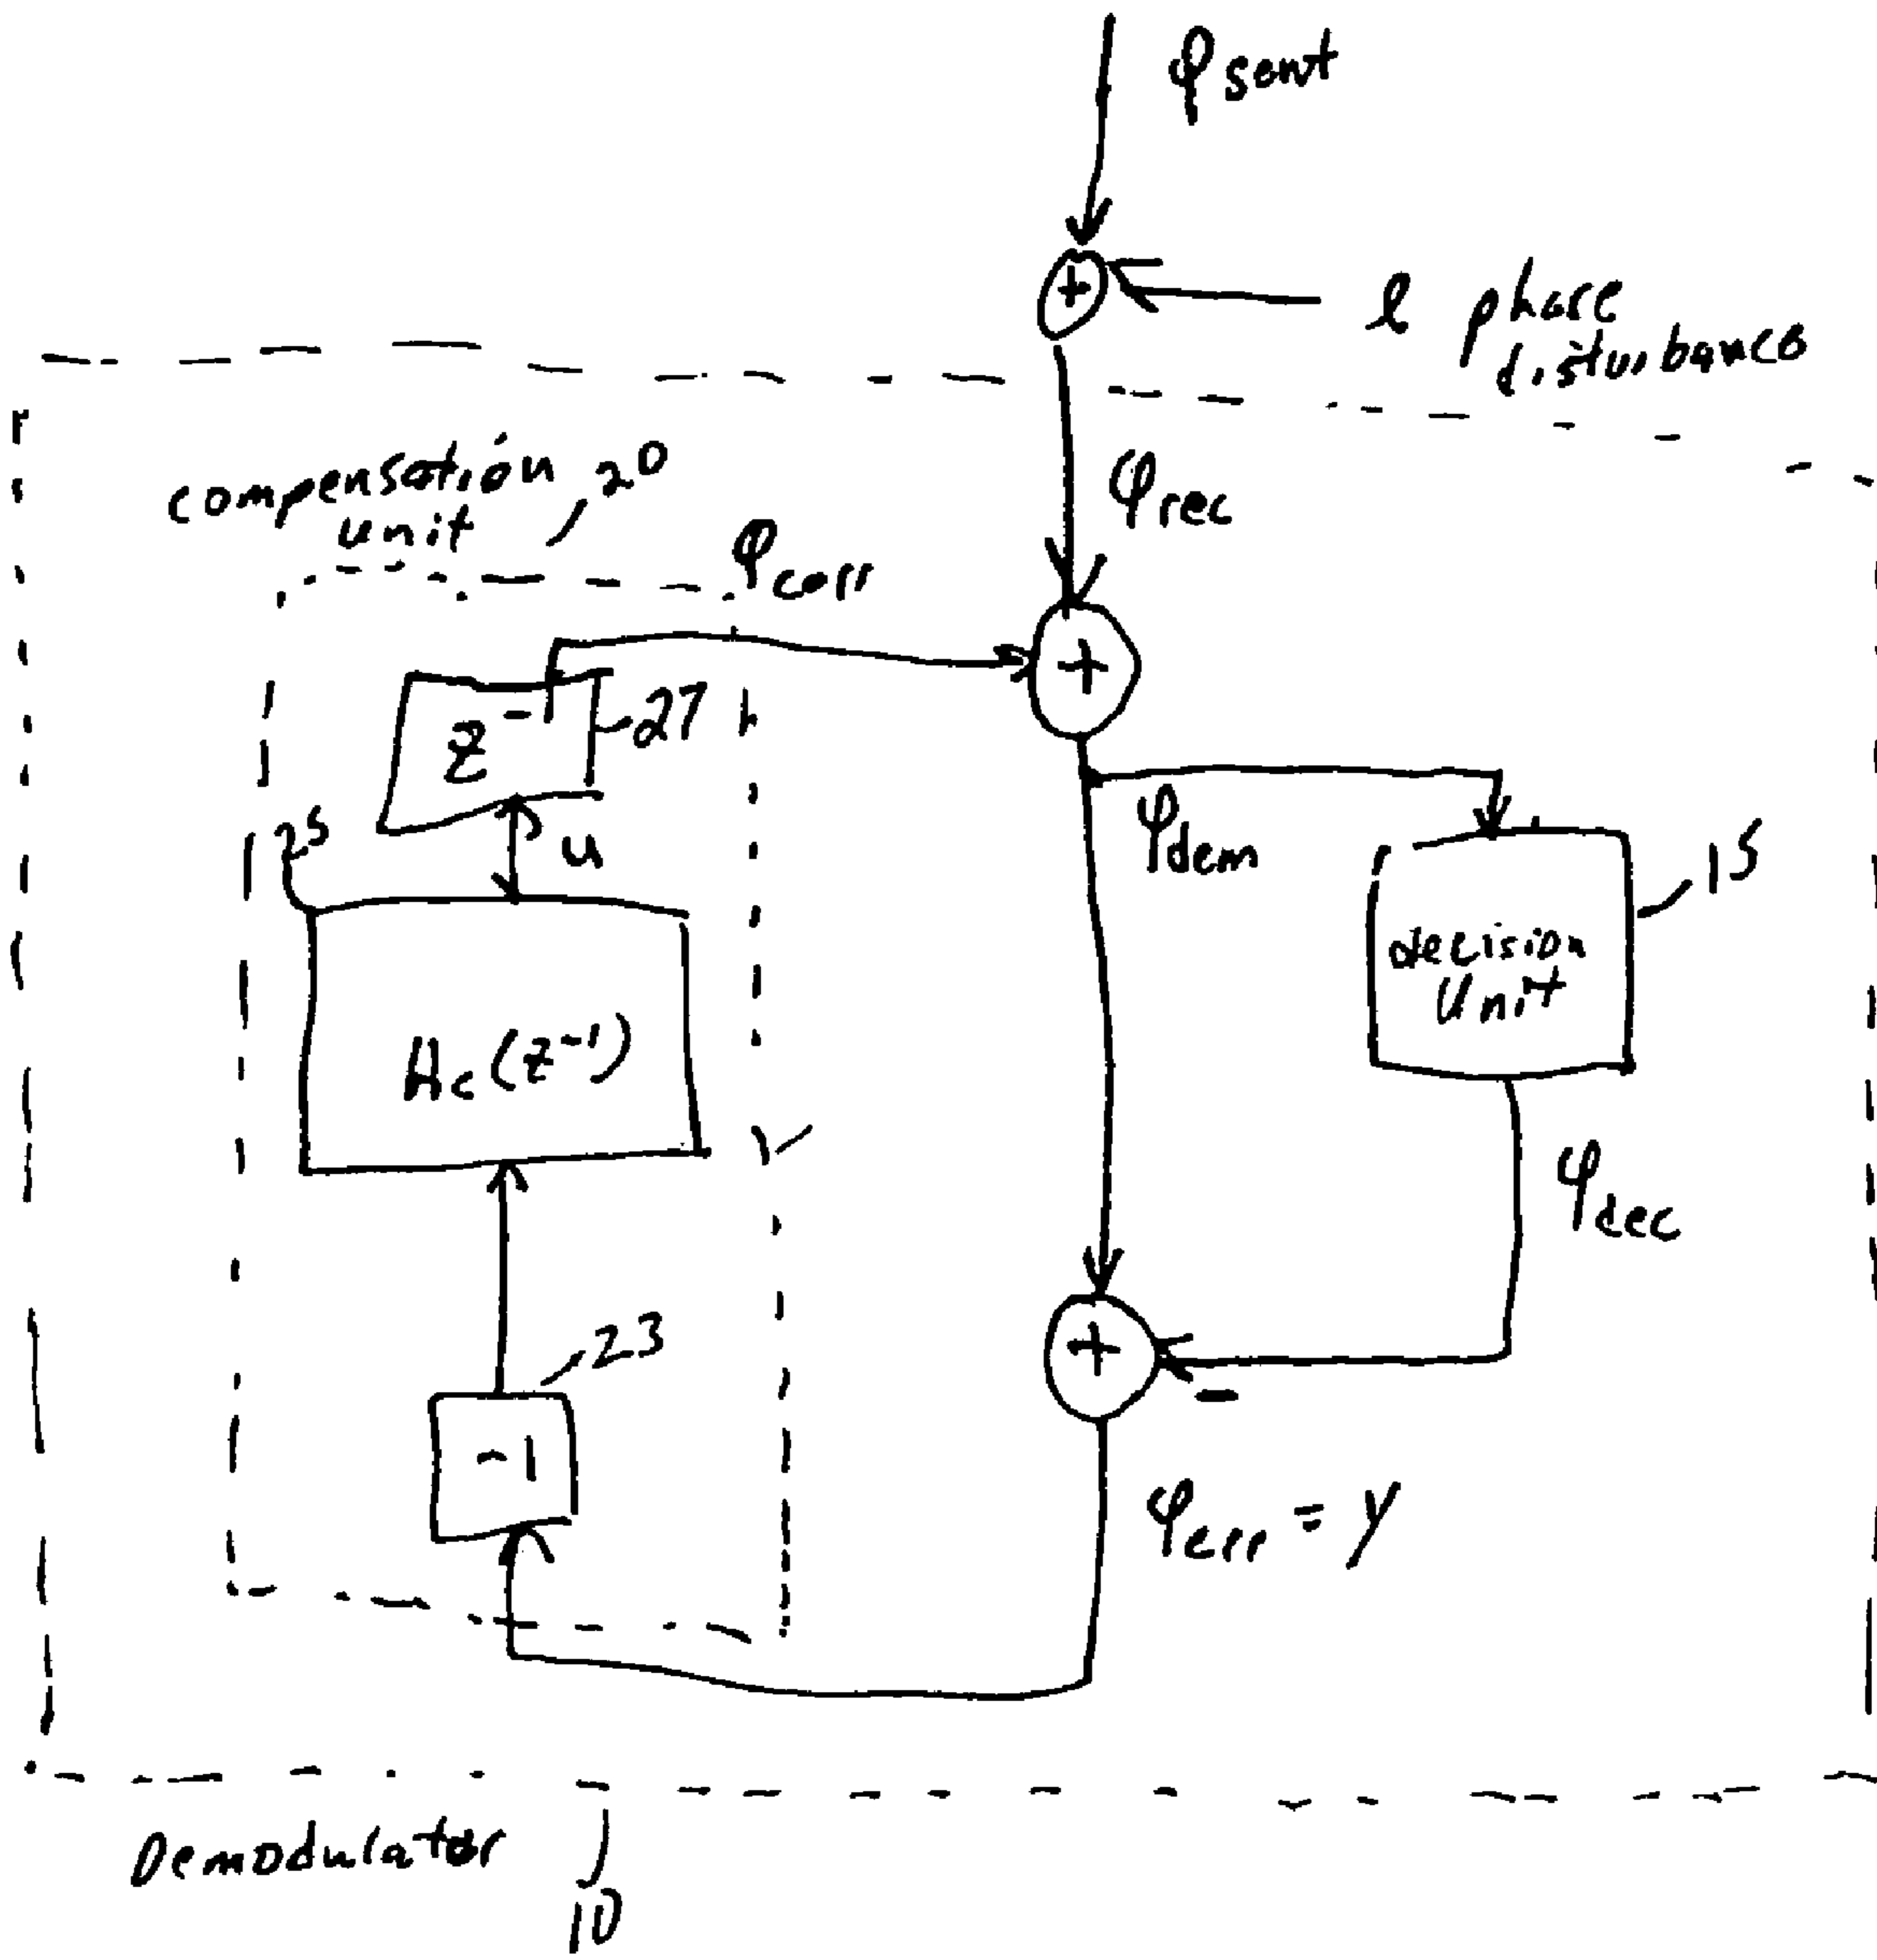 φsent
+
l phase
disturbance
compensation
unit
20
φrec
φcorr
+
z⁻¹
27
25
u
φdem
15
decision
Unit
Hc(z⁻¹)
φdec
23
+
-
-1
φerr = y
Demodulator
10